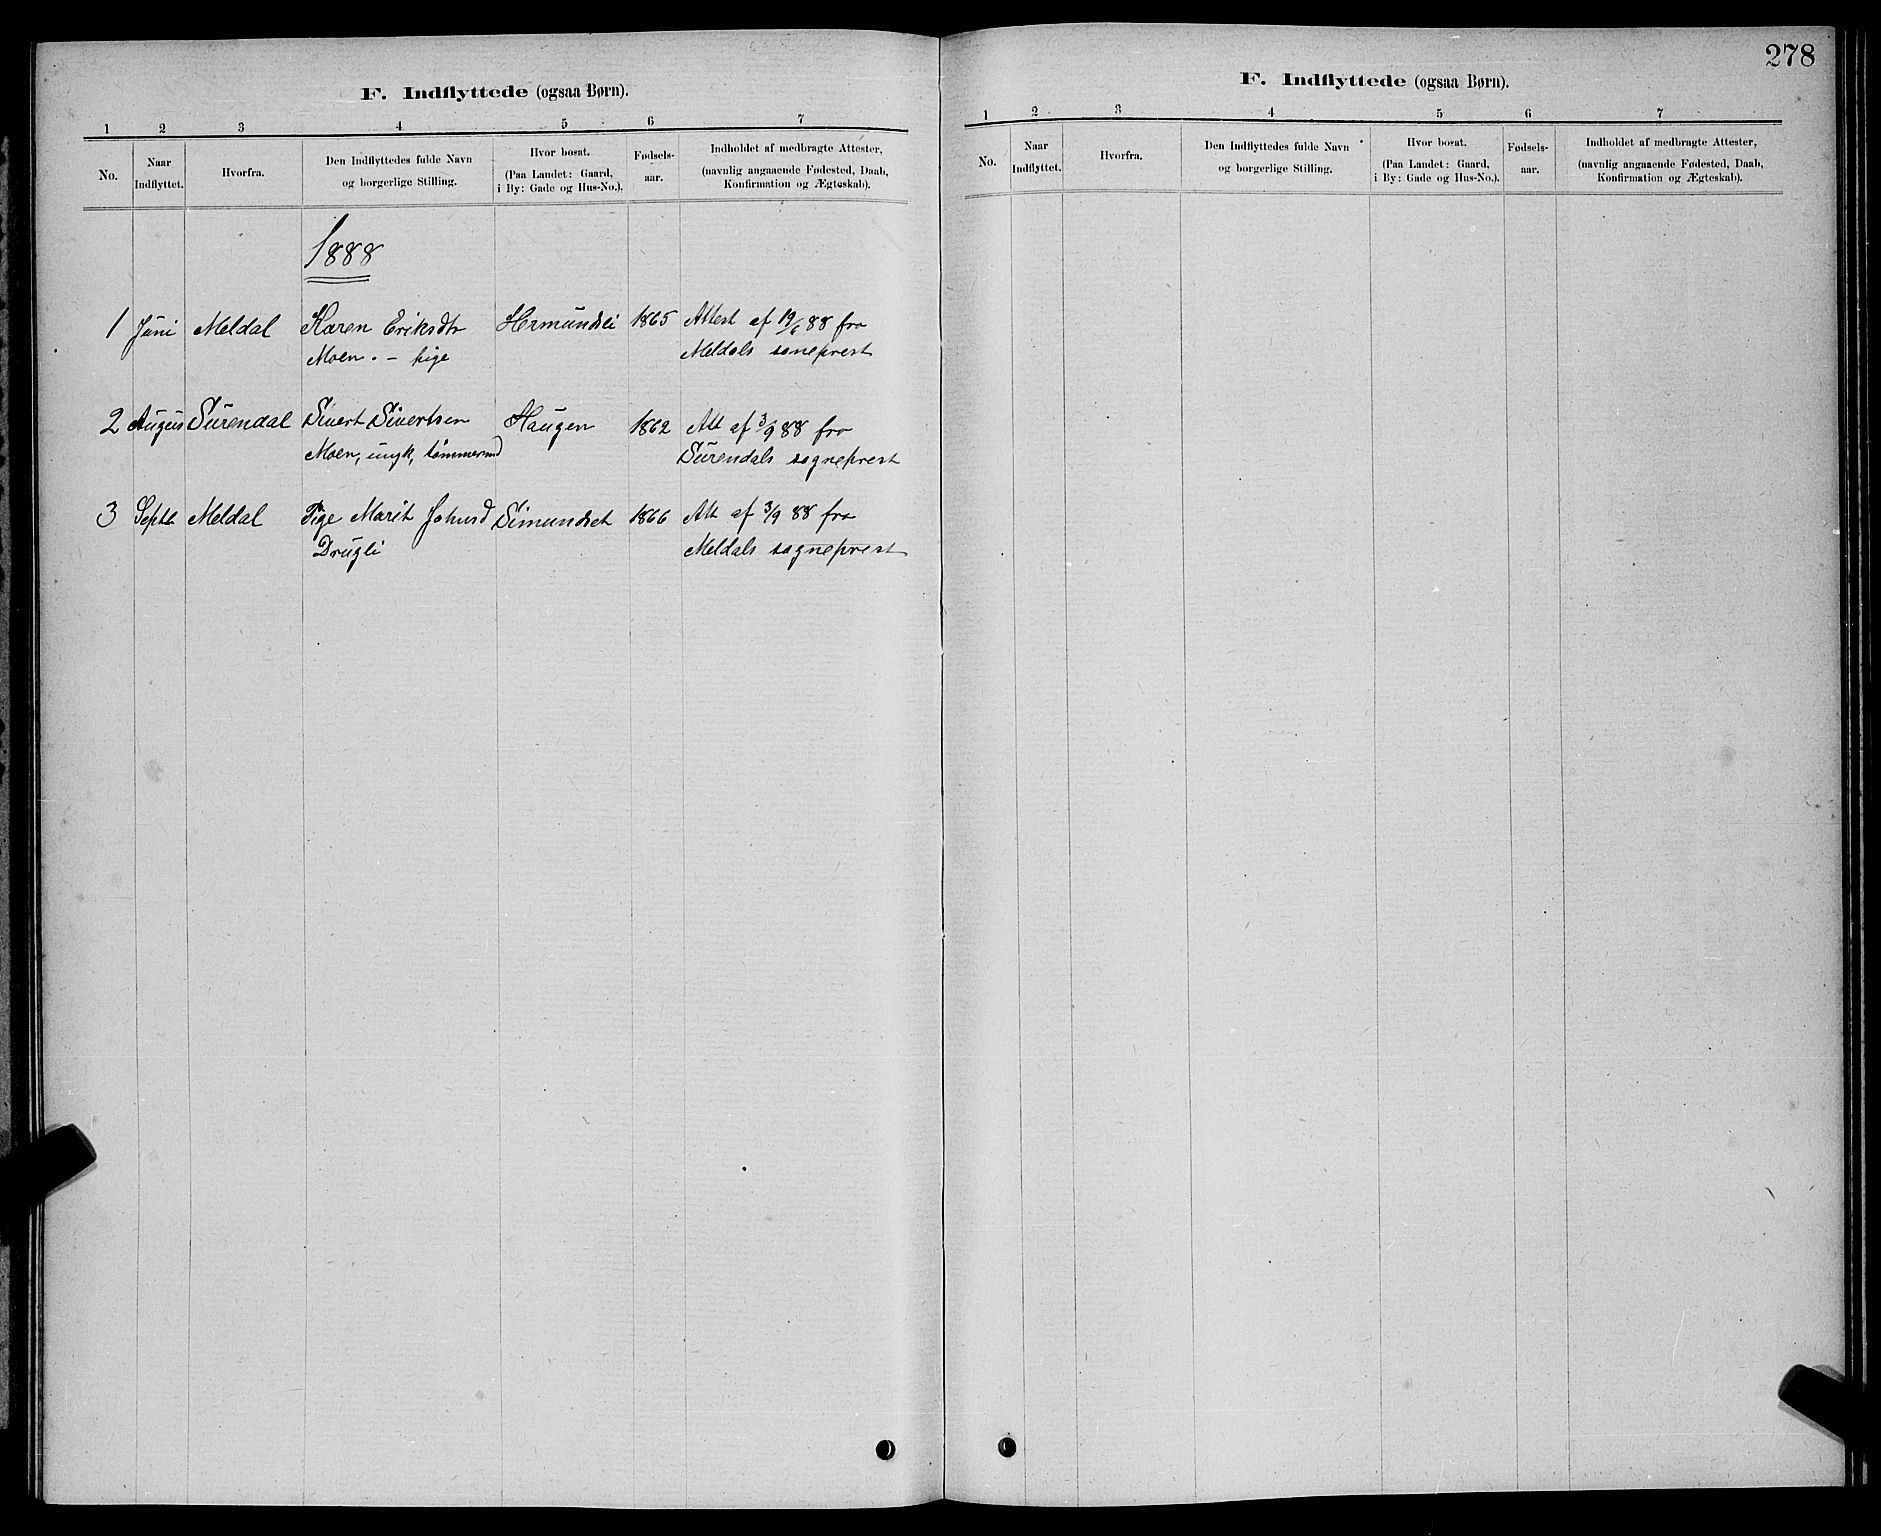 278
F. Indflyttede (ogsaa Børn).
1 2 3 4 5 6 7
No. Naar Indflyttet. Hvorfra. Den Indflyttedes fulde Navn og borgerlige Stilling. Hvor bosat. (Paa Landet: Gaard, i By: Gade og Hus-No.). Fødsels-aar. Indholdet af medbragte Attester, (navnlig angaaende Fødested, Daab, Konfirmation og Ægteskab).
1888
1 Juni Meldal Karen Eriksdtr Hermundsli 1865 Attest af 19/6 88 fra
Moen. - pige Meldals soneprest
2 Augus Surendal Sivert Sivertsen Haugen 1862 Att af 3/9 88 fra
Moen, ungk, tømmermd Surendals sogneprest
3 Septb Meldal Pige Marit Johnsd Simundset 1866 Att af 3/9 88 fra
Drugli Meldals sogneprest
F. Indflyttede (ogsaa Børn).
1 2 3 4 5 6 7
No. Naar Indflyttet. Hvorfra. Den Indflyttedes fulde Navn og borgerlige Stilling. Hvor bosat. (Paa Landet: Gaard, i By: Gade og Hus-No.). Fødsels-aar. Indholdet af medbragte Attester, (navnlig angaaende Fødested, Daab, Konfirmation og Ægteskab).